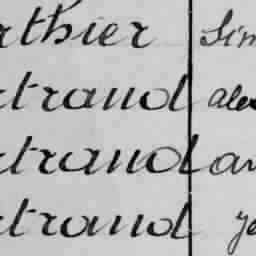 rthier Sim
rtrand alex
rtrand an
rtrand ye